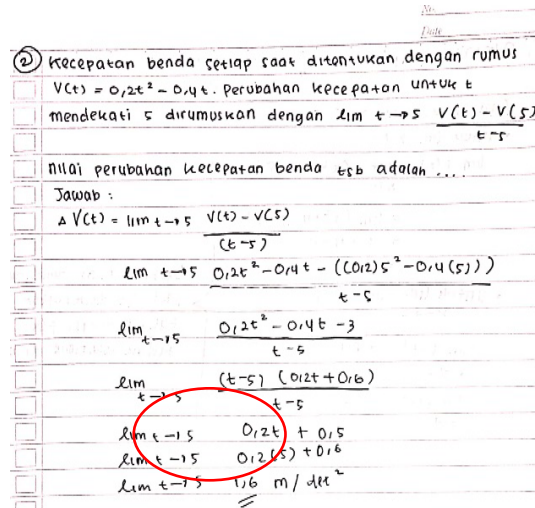 No.
Date
② Kecepatan benda setiap saat ditentukan dengan rumus
V(t) = 0,2t² - 0,4t. perubahan kecepatan untuk t
mendekati 5 dirumuskan dengan lim t→5 V(t) - V(5) / t-5
nilai perubahan kecepatan benda tsb adalah ....
Jawab :
Δ V(t) = lim t→5 V(t) - V(5) / (t-5)
lim t→5 0,2t² - 0,4t - ((0,2)5² - 0,4(5))) / t-5
lim t→5 0,2t² - 0,4t - 3 / t-5
lim t→5 (t-5) (0,2t + 0,6) / t-5
lim t→5 0,2t + 0,5
lim t→5 0,2(5) + 0,6
lim t→5 1,6 m/det²